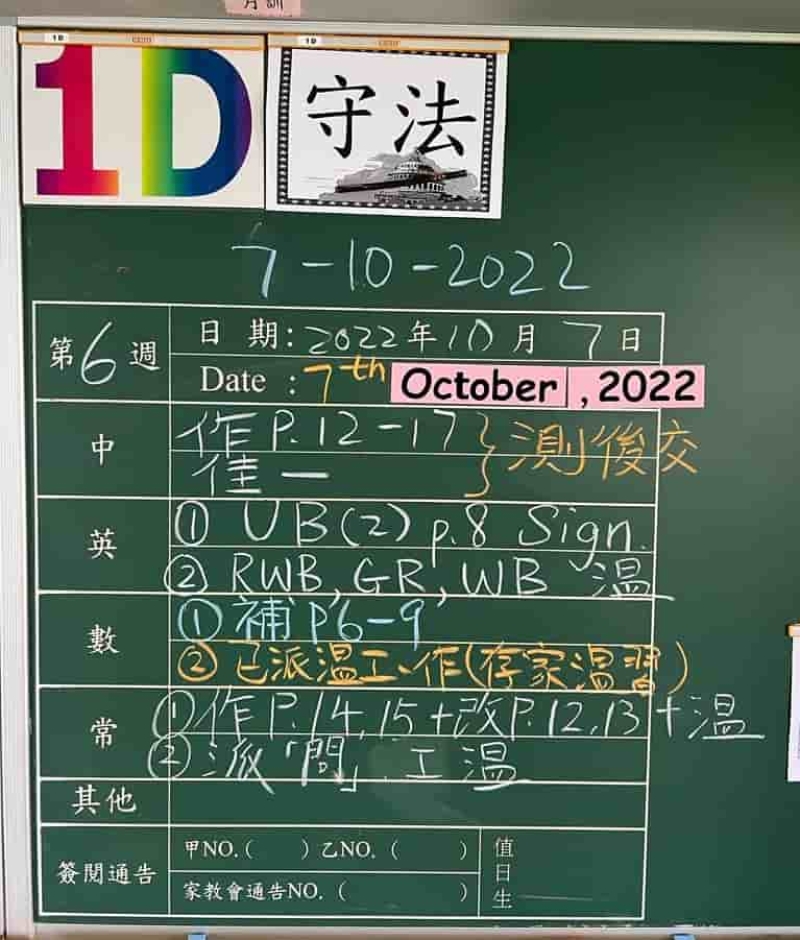 月訓
1D
守法
7-10-2022
第6週
日期:2022年10月7日
Date :7th October, 2022
中
作P.12-17
佳一
}測後交
英
① UB(2) p.8 Sign.
② RWB, GR, WB 溫
數
① 補P6-9
② 已派溫工作(存家溫習)
常
①作P.14,15+改P.12,13+溫
②派「問」工溫
其他
簽閱通告
甲NO.( )乙NO.( )
家教會通告NO.( )
值日生